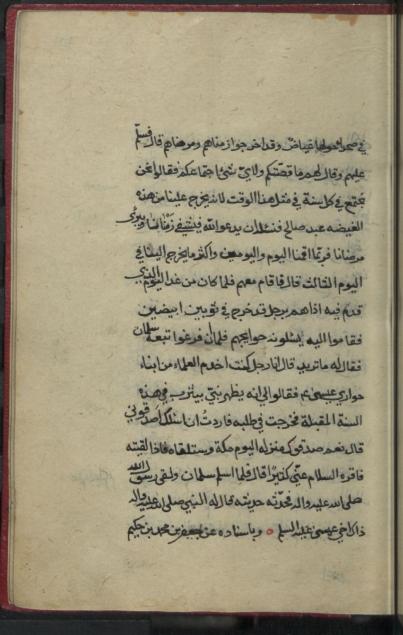 في صحراء حولها غياض وقد اخرجوا زمناهم ومرضاهم قال فسلّم
عليهم وقال لهم ما قصّتكم ولايّ شئ اجتماعكم فقالوا نحن
نجتمع في كل سنة في مثل هذا الوقت لانه يخرج علينا من هذه
الغيضه عبد صالح فنسئله ان يدعو الله فيشفي زمنانا ويبرئ
مرضانا فربّما اقمنا اليوم واليومين واكثر ما يخرج الينا في
اليوم الثالث قال فاقام معهم فلما كان من غد اليوم الذي
قدم فيه اذا هم برجل قد خرج في ثوبين ابيضين
فقاموا اليه يسئلونه حوايجهم فلما ان فرغوا تبعه سلمان
فقال له ما تريد قال انا رجل كنت اخدم العلماء من ابناء
حواري عيسى ع م فقالوا لي انه يظهر نبيّ بيثرب في هذه
السنة المقبلة فخرجت في طلبه فاردتُ ان اسئلك أصدقوني
قال نعم صدقوك منزله اليوم مكة وستلقاه فاذا لقيته
فاقره السلام عنّي كثيرًا قال فلما اسلم سلمان ولقى رسول الله
صلى الله عليه واله فحدّثه حديثه فقال له النبي صلى الله عليه واله
ذاك اخي عيسى عليه السلم ه وباسناده عن جعفر بن محمد بن حكيم